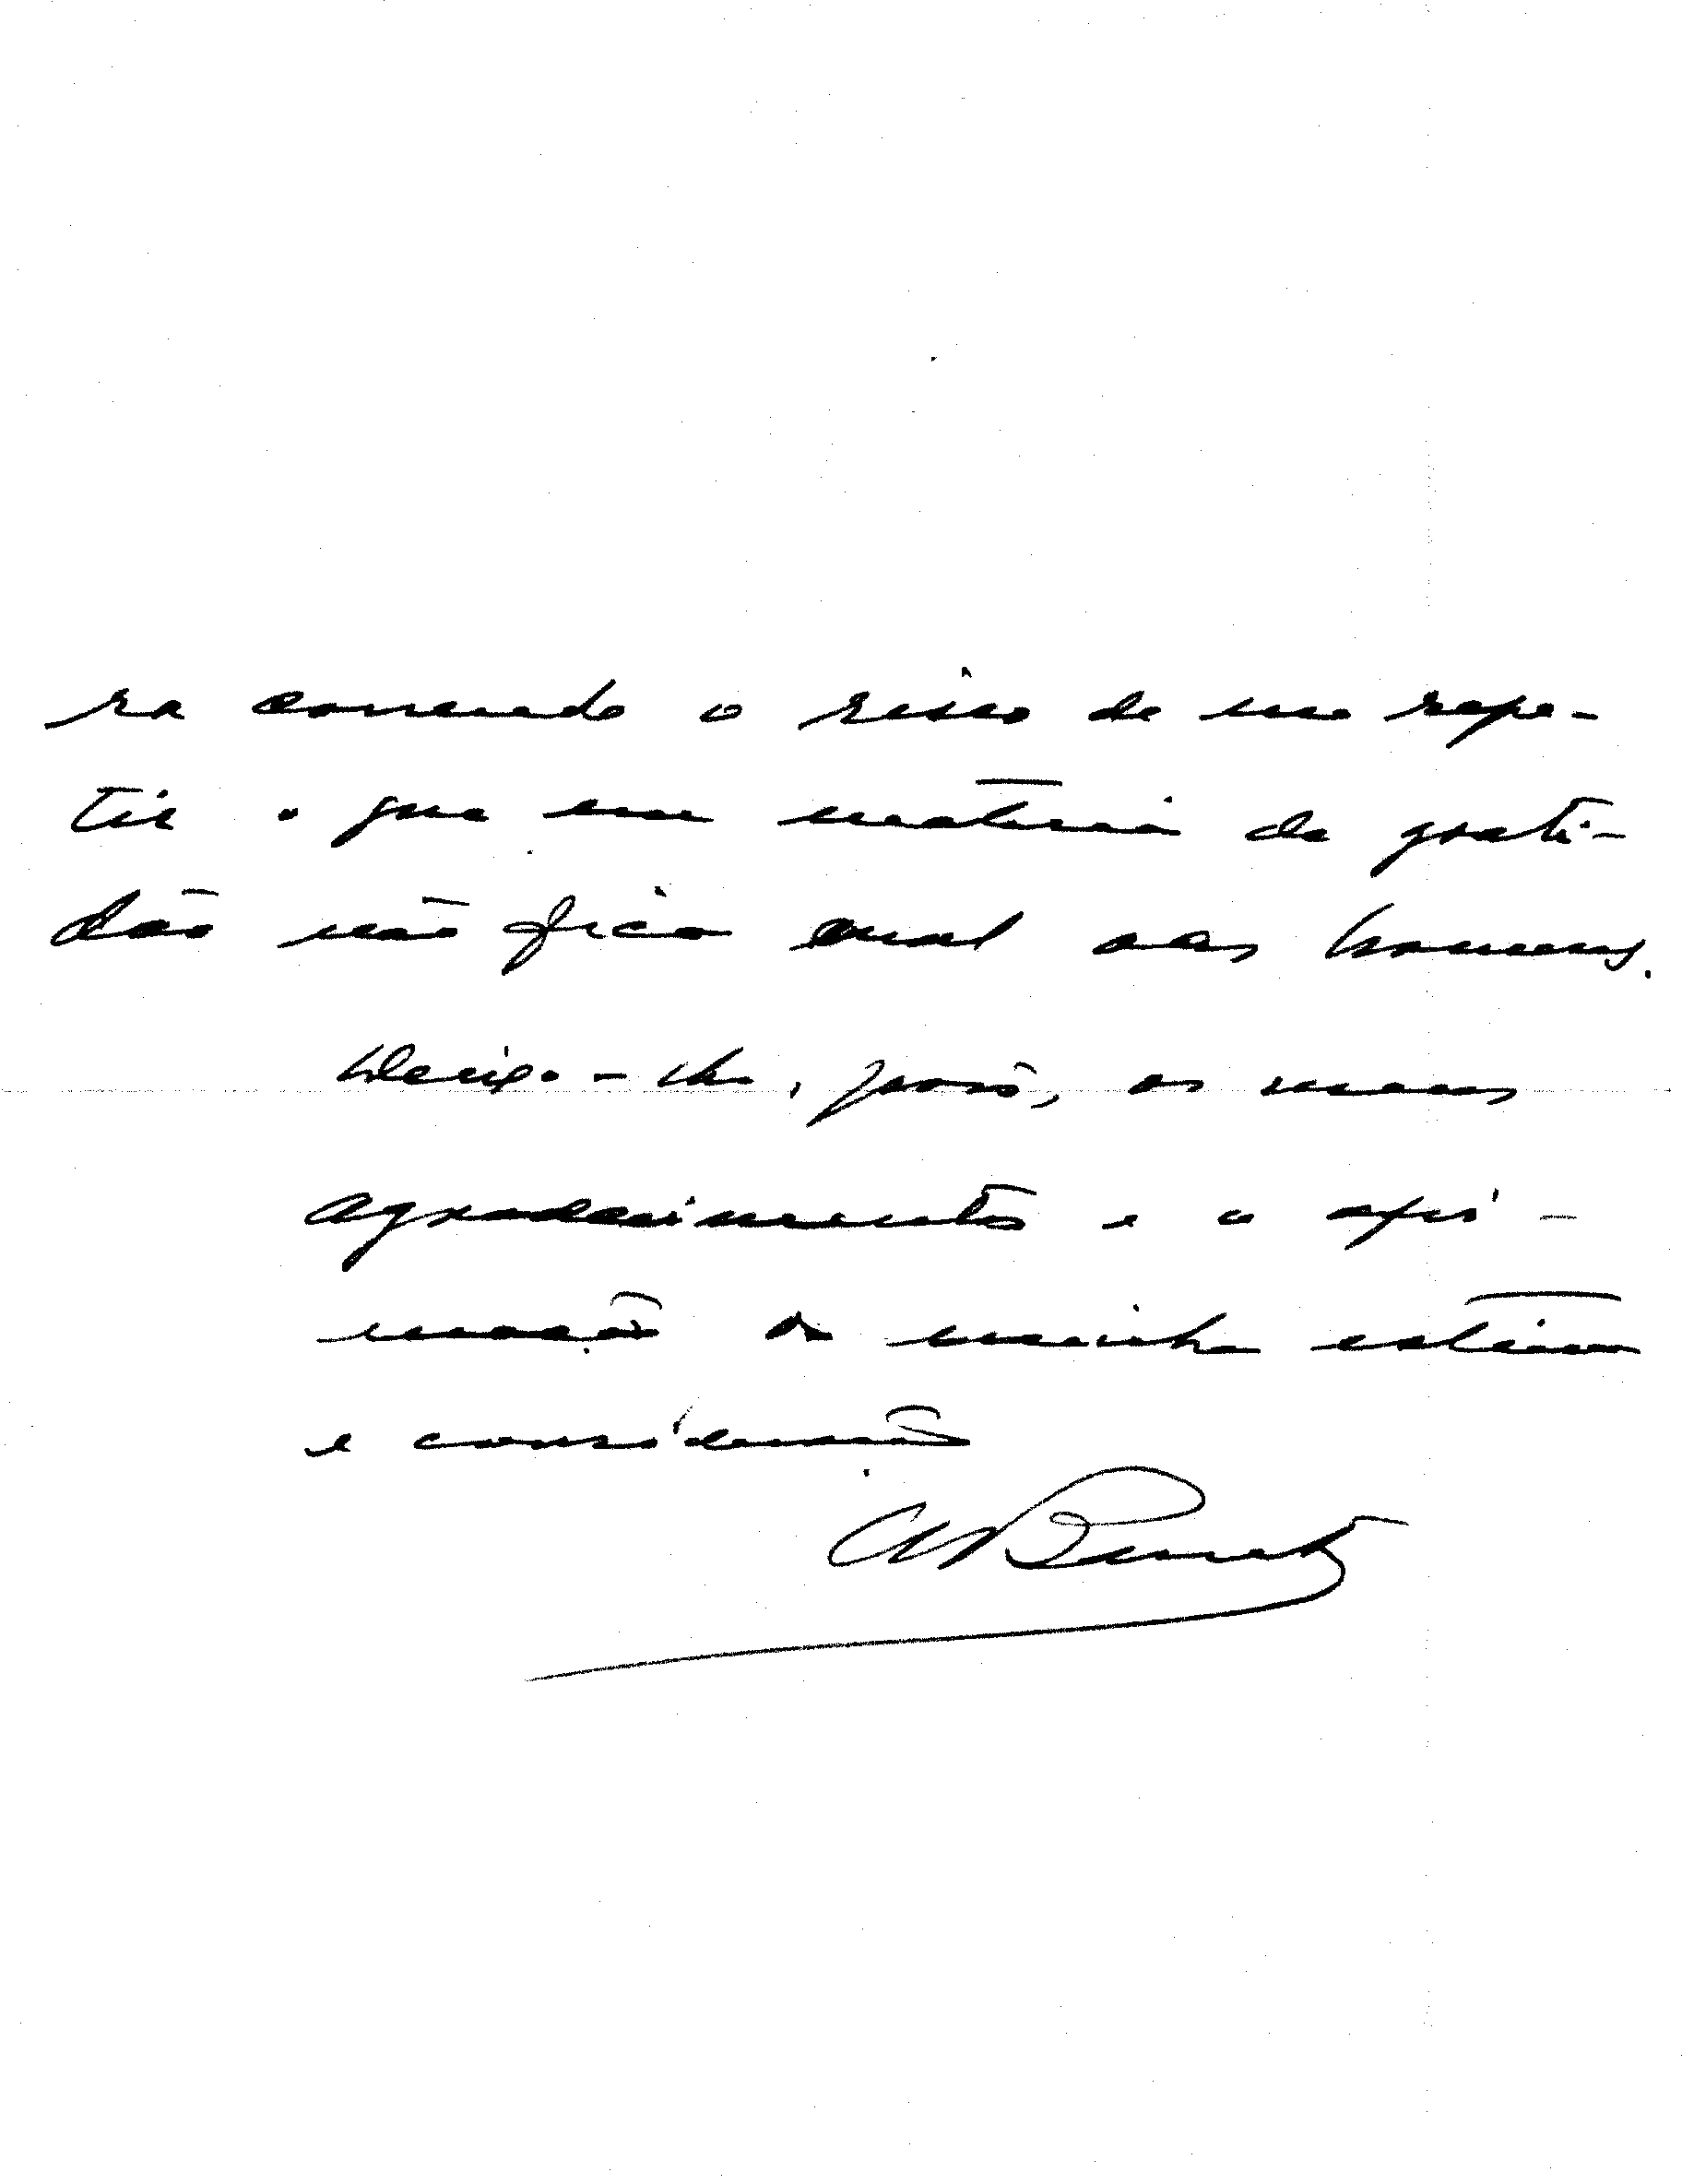 ra correndo o risco de me repe-
tir o que em matéria de grati-
dão não fica mal aos homens.
-lhe, pois, os meus
agradecimentos e a afir-
mação da minha estima
e consideração